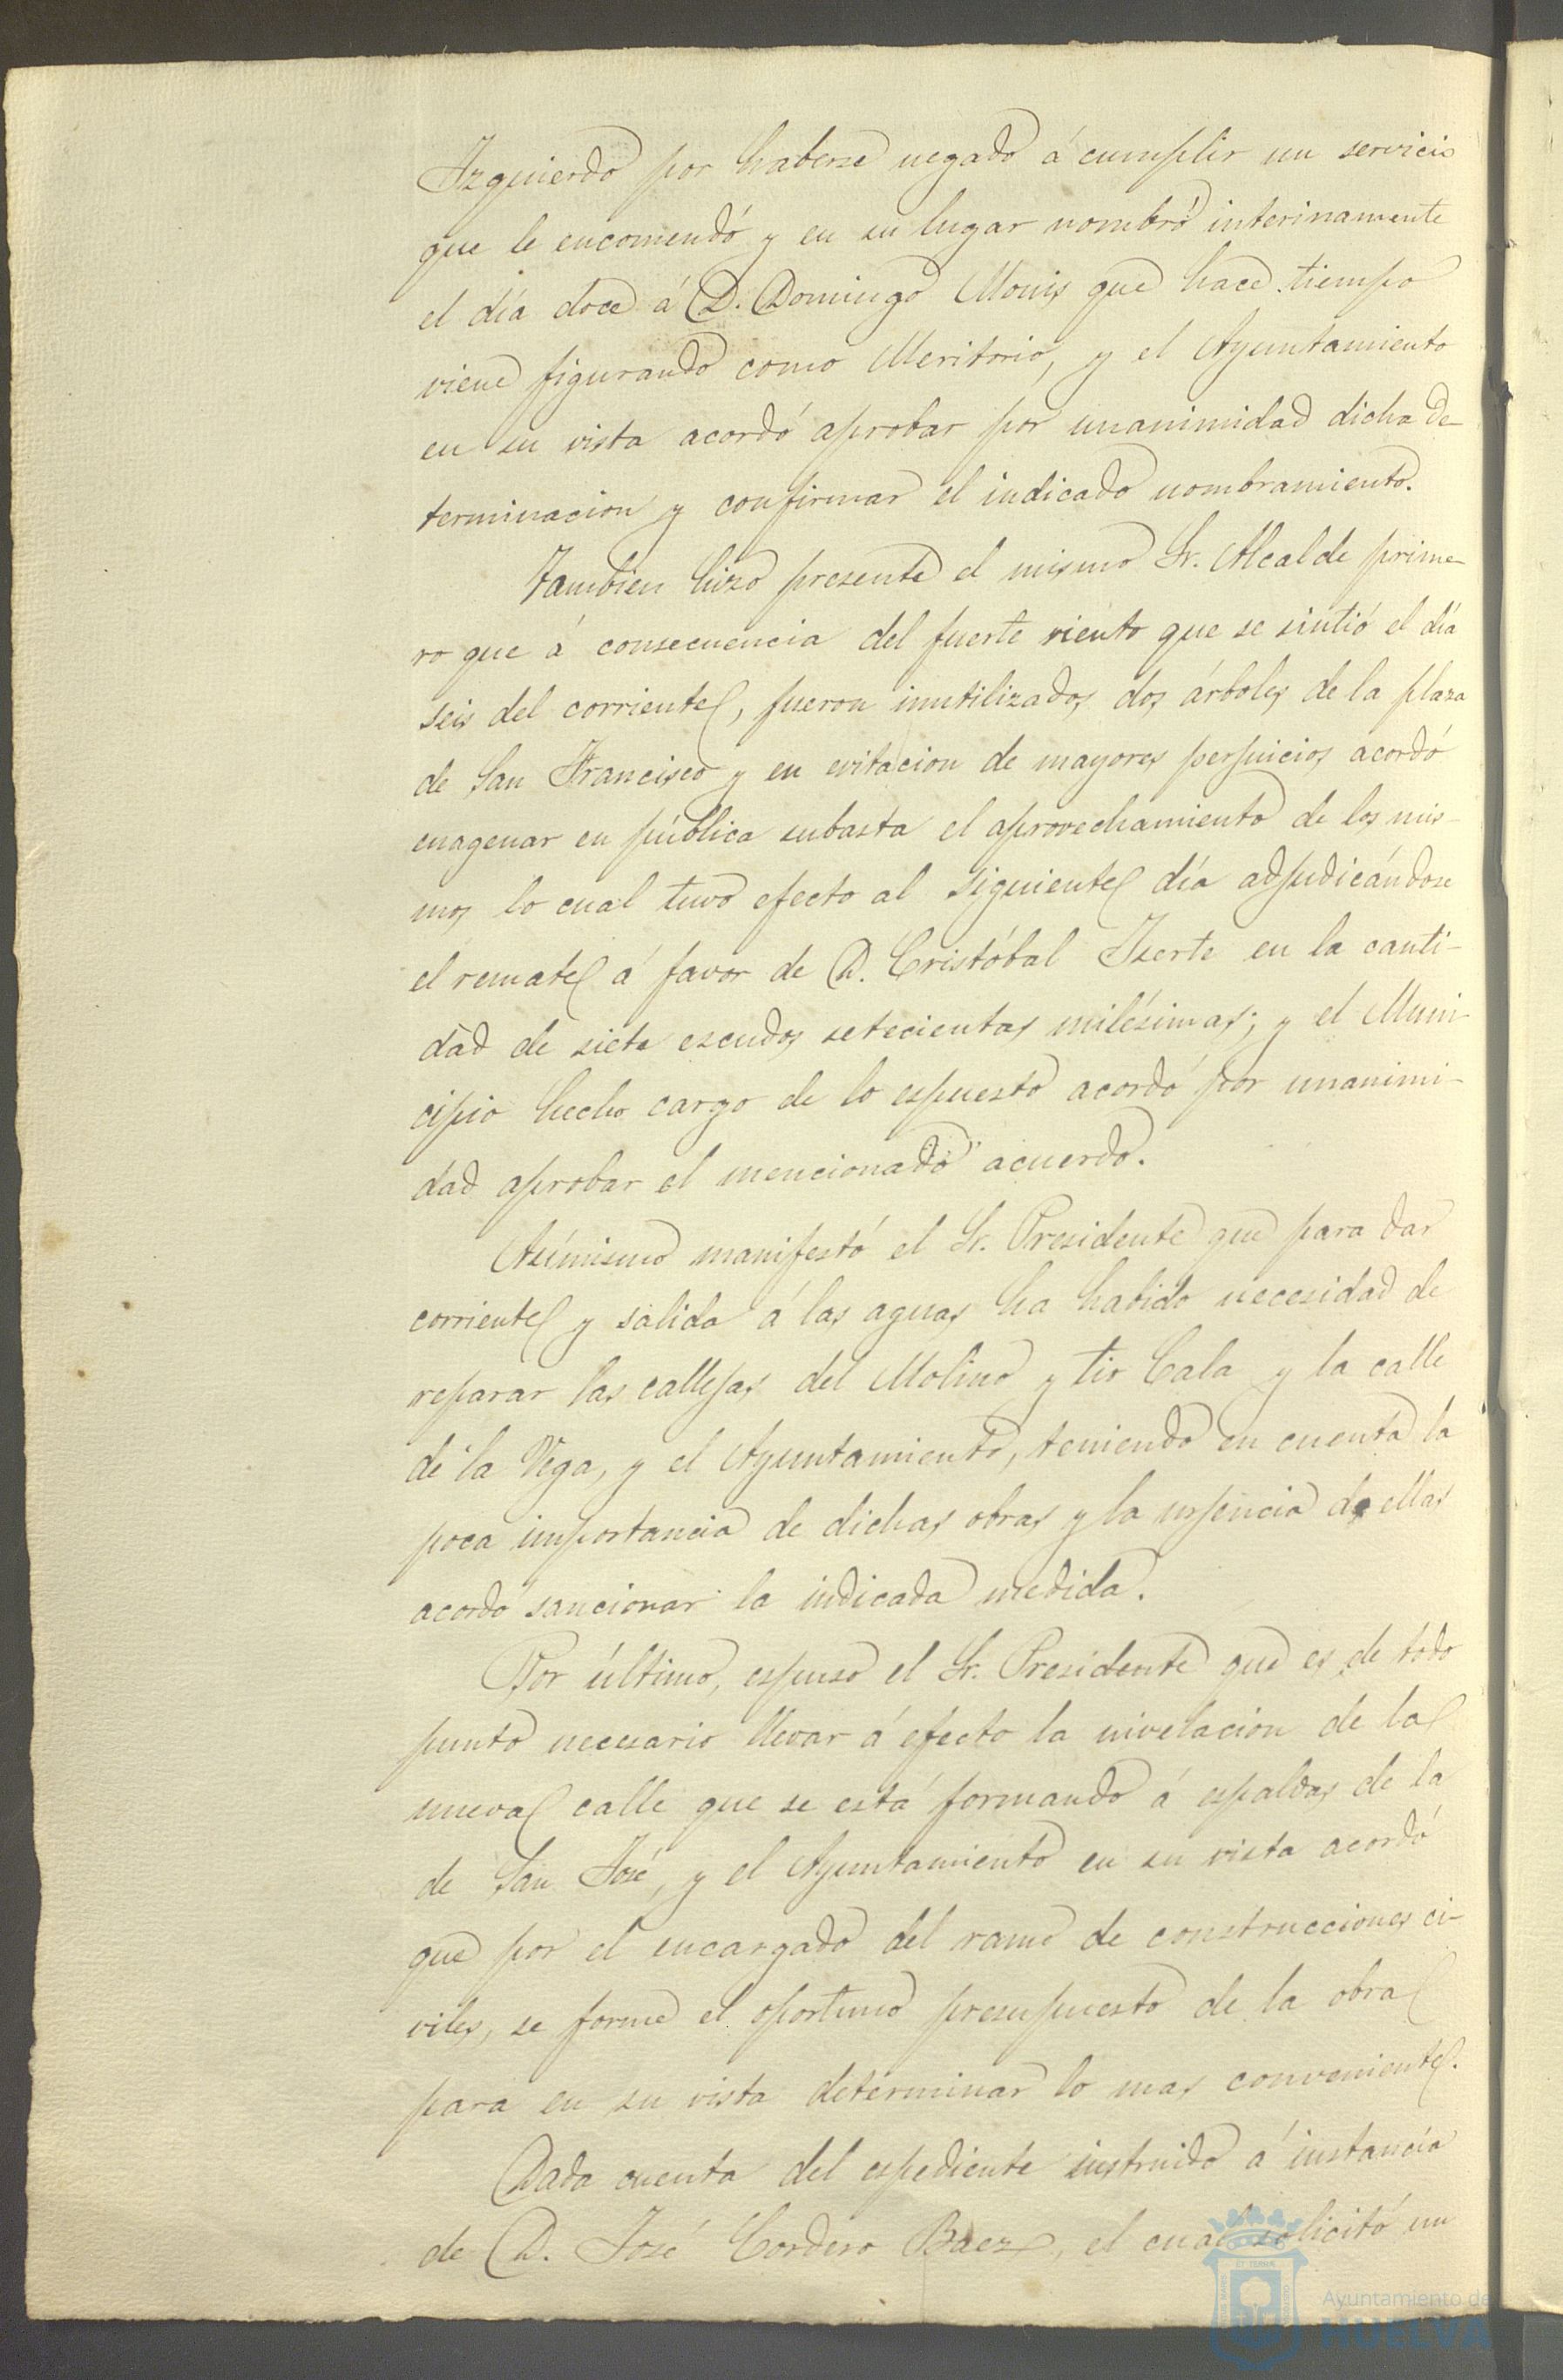 Izquierdo por haberse negado á cumplir un servicio
que le encomendó y en su lugar nombró interinamente
el día doce á D. Domingo Monis que hace tiempo
viene figurando como Meritorio, y el Ayuntamiento
en su vista acordó aprobar por unanimidad dicha de-
terminacion y confirmar el indicado nombramiento.
Tambien hizo presente el mismo Sr. Alcalde prime-
ro que á consecuencia del fuerte viento que se sintió el día
seis del corriente, fueron inutilizados dos árboles de la plaza
de San Francisco y en evitacion de mayores perjuicios acordó
enagenar en pública subasta el aprovechamiento de los mis-
mos, lo cual tuvo efecto al siguiente día adjudicándose
el remate á favor de D. Cristóbal Iserte en la canti-
dad de siete escudos setecientas milésimas; y el Muni-
cipio hecho cargo de lo espuesto acordó por unanimi-
dad aprobar el mencionado acuerdo.
Asímismo manifestó el Sr. Presidente que para dar
corriente y salida á las aguas ha habido necesidad de
reparar las callejas del Molino y tio Cala y la calle
de la Vega, y el Ayuntamiento, teniendo en cuenta la
poca importancia de dichas obras y la urjencia de ellas
acordó sancionar la indicada medida.
Por último, espuso el Sr. Presidente que es de todo
punto necesario llevar á efecto la nivelacion de la
nueva calle que se está formando á espaldas de la
de San José, y el Ayuntamiento en su vista acordó
que por el encargado del ramo de construcciones ci-
viles, se forme el oportuno presupuesto de la obra
para en su vista determinar lo mas conveniente.
Dada cuenta del espediente instruido á instancia
de D. José Cordero Baez, el cual solicitó un
Ayuntamiento de
HUELVA